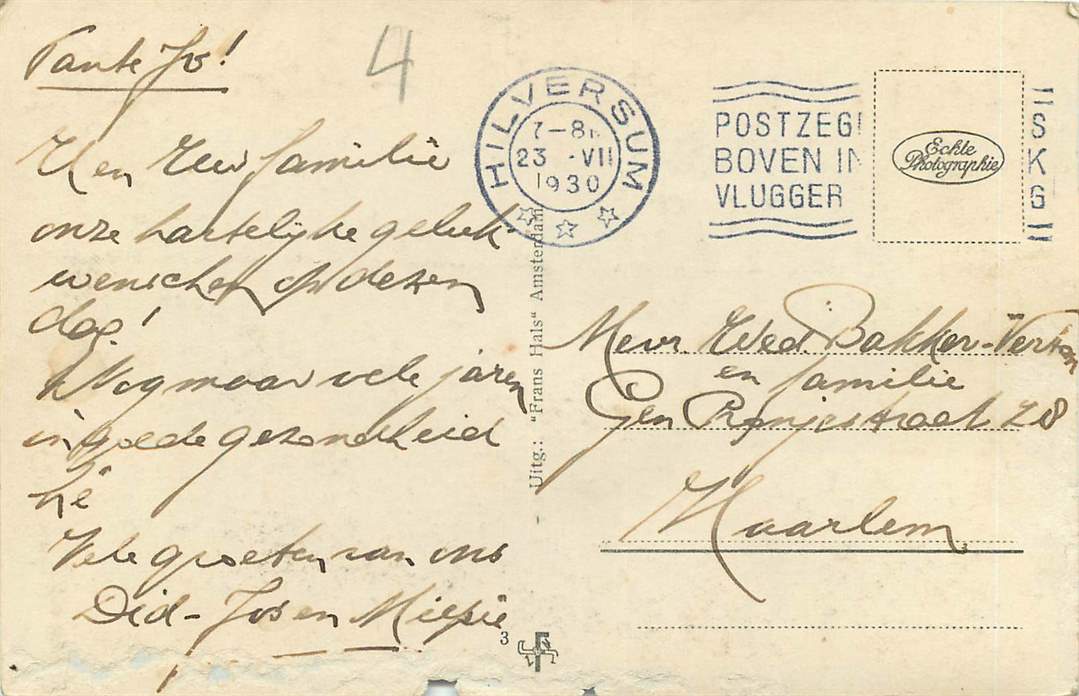 Tante Jo!
4
U en Uw familie
onze hartelijke geluk
wenschen op dezen
dag!
Nog maar vele jaren
in goede gezondheid
hé
Vele groeten van ons
Did - Jos en Miepie
HILVERSUM
7-8
23 .VII
1930
POSTZEG S
BOVEN IN K
VLUGGER G
Echte
Photographie
Uitg.: "Frans Hals" Amsterdam
Mevr. Wed. Bakker-
en familie
Gen Cronjéstraat 78
Haarlem
3